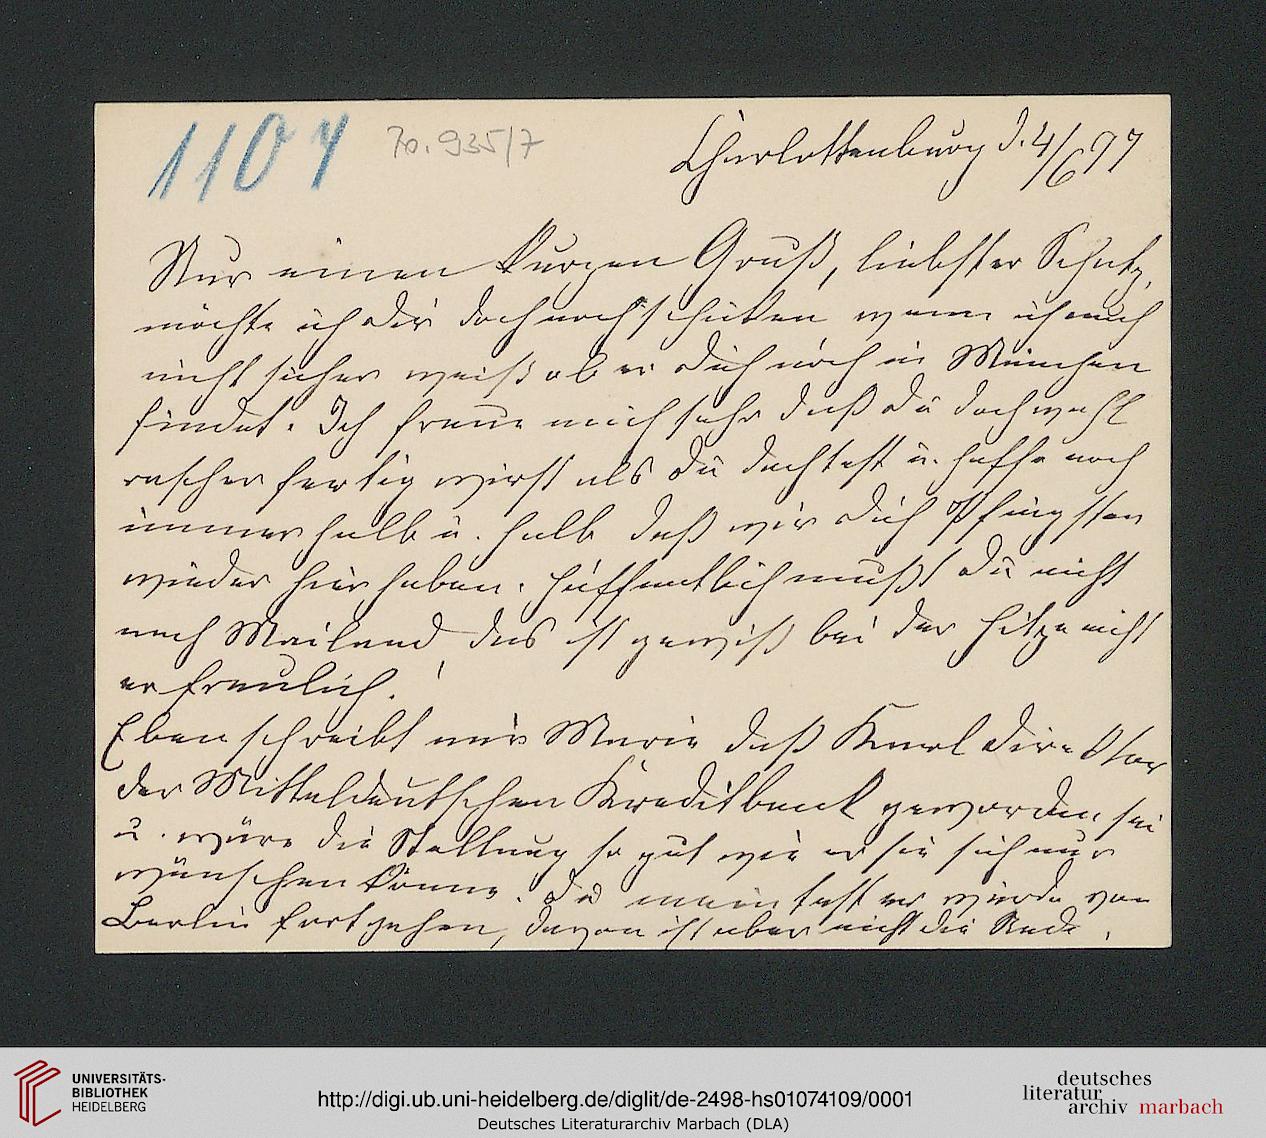 1107 70.935/7
Charlottenburg d. 4/6 97
Nur einen kurzen Gruß, liebster Schatz,
möchte ich Dir doch noch schicken wenn ich auch
nicht sicher weiß ob er Dich noch in München
findet. Ich freue mich sehr daß Du doch wohl
rascher fertig wirst als Du dachtest u. hoffe noch
immer halb u. halb daß wir Dich Pfingsten
wieder hier haben. Hoffentlich mußt Du nicht
nach Mailand, das ist gewiß bei der Hitze nicht
erfreulich.
Eben schreibt mir Marie daß Karl Direktor
der Mitteldeutschen Kreditbank geworden sei
u. wäre die Stellung so gut wie er sie sich nur
wünschen könne. Du meintest er würde von
Berlin fortgehen, davon ist aber nicht die Rede.
UNIVERSITÄTS-
BIBLIOTHEK
HEIDELBERG
http://digi.ub.uni-heidelberg.de/diglit/de-2498-hs01074109/0001
Deutsches Literaturarchiv Marbach (DLA)
deutsches
literatur
archiv marbach